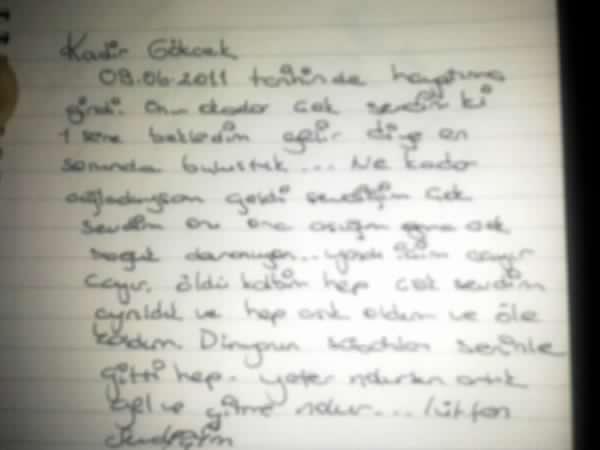 Kadir Gökcek
09.06.2011 tarihinde hayatıma
girdi. Onu okadar cok sevdim ki
1 sene bekledim gelir diye en
sonunda buluştuk... Ne kadar
ağladıysam geldi sevdiğim cok
sevdim onu ona aşığım ama cok
soguk davranıyor.. yandı içim cayır
cayır, öldü kalbim hep cok sevdim
ayrıldık ve hep aşık oldum ve öle
kaldım. Dünyanın seninle
gitti hep. yeter ndursun artık
gel ve gitme ndur... lütfen
Sevdiğim